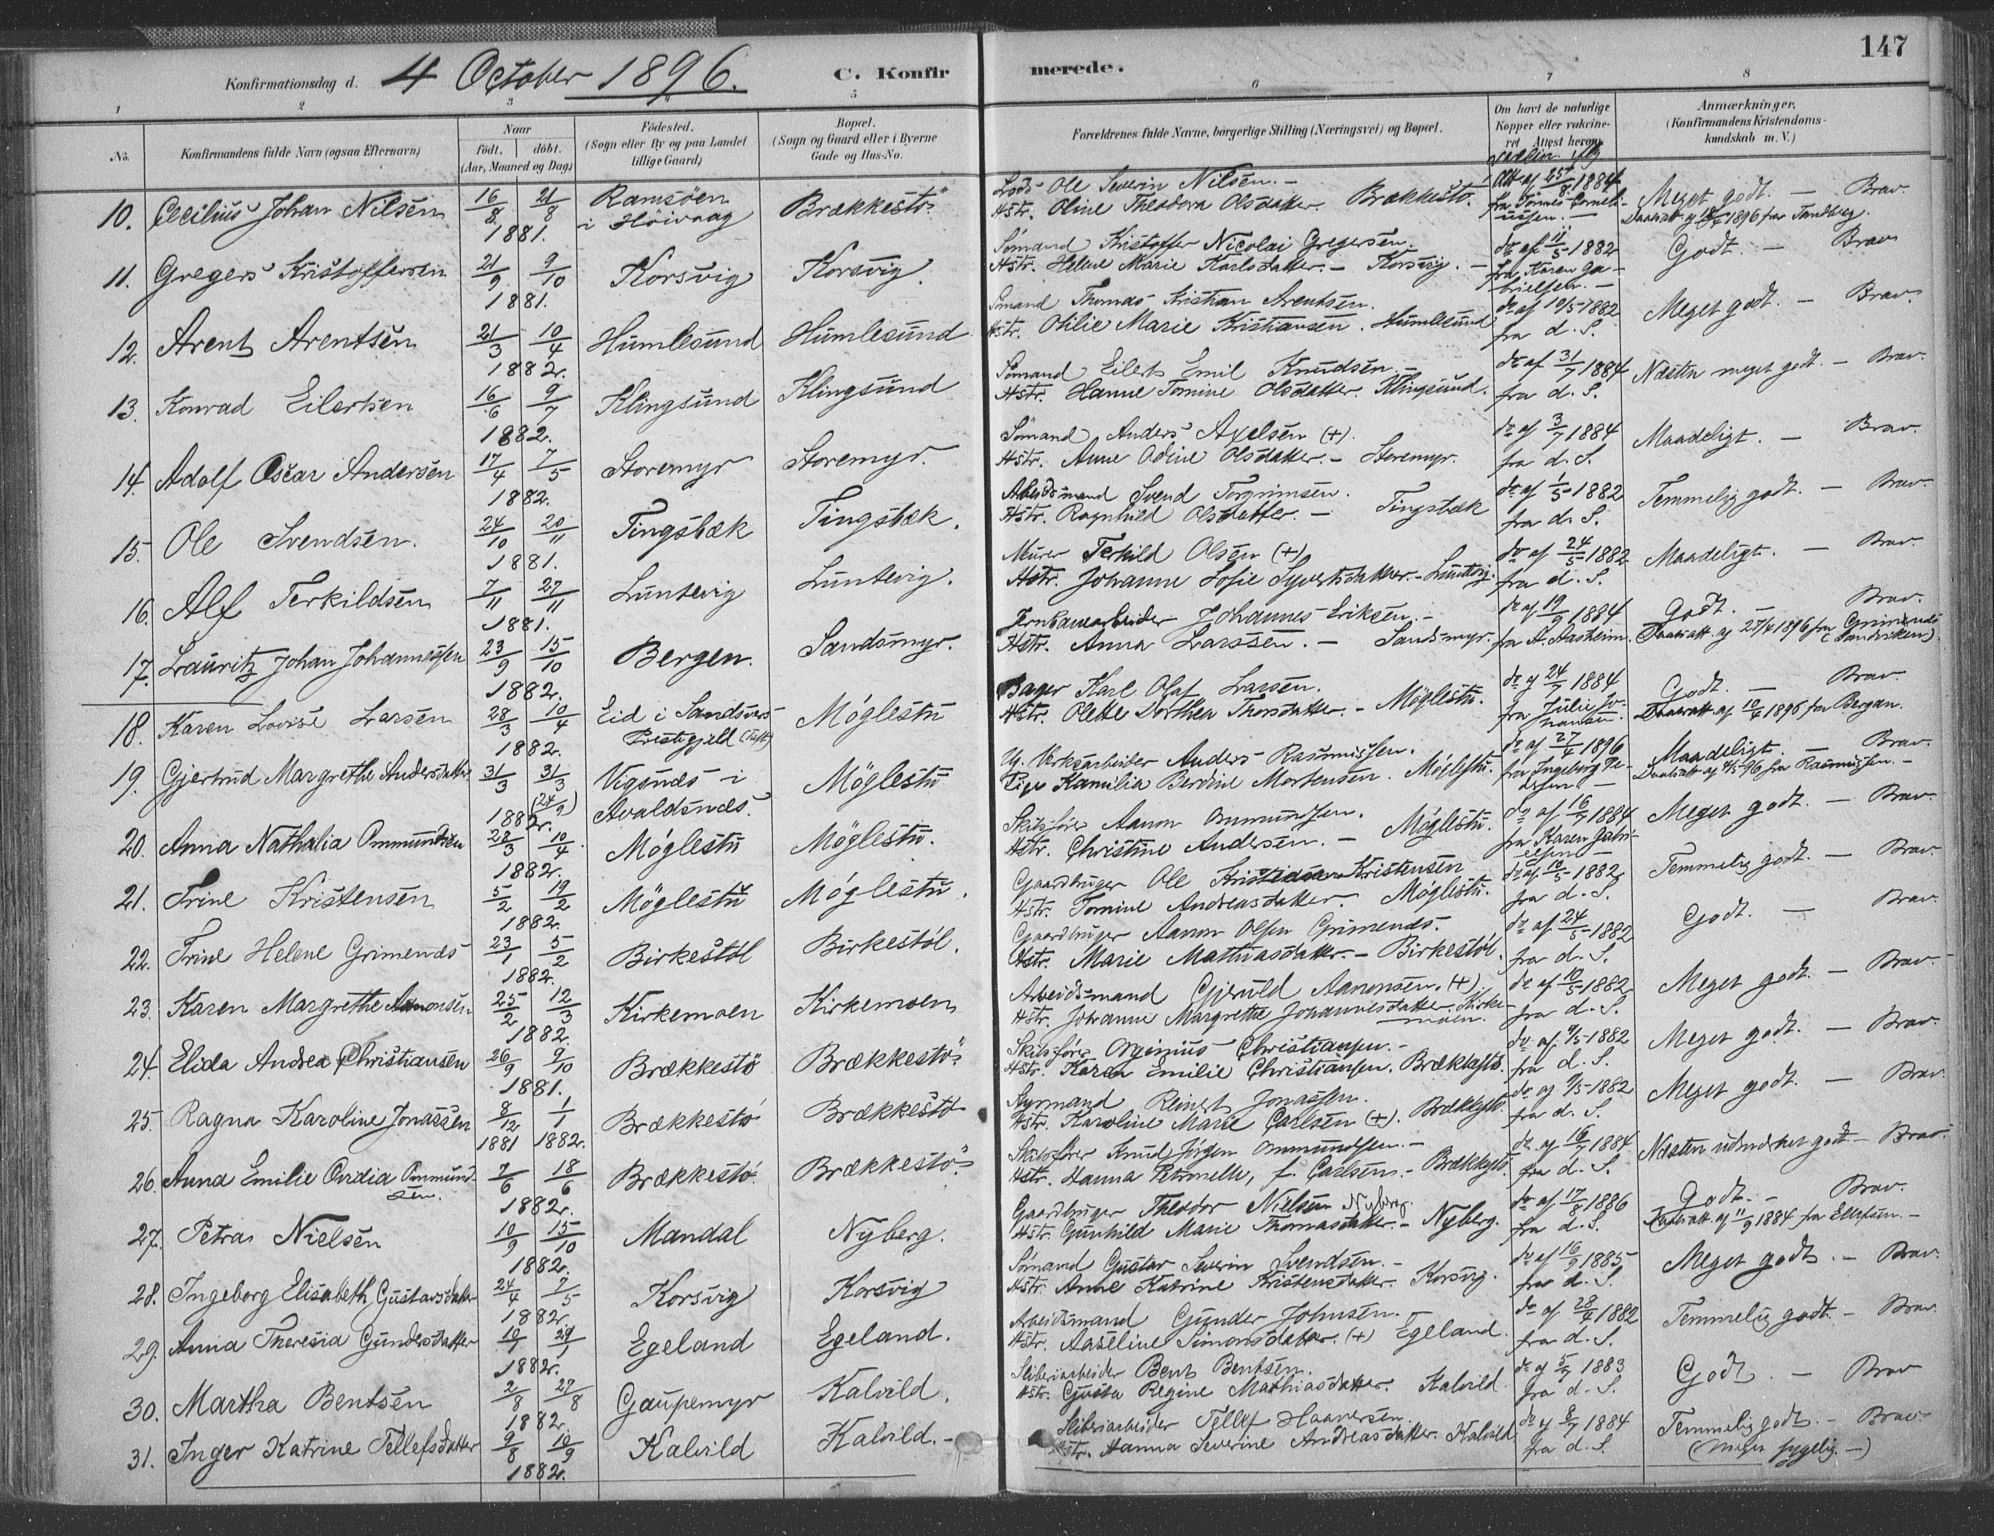 147
Konfirmationsdag d. 4 October 1896.
C. Konfirmerede.
1 2 3 5 6 7 8
No.
Konfirmandens fulde Navn (ogsaa Efternavn)
Naar
født. | døbt.
(Aar, Maaned og Dag)
Fødested.
(Sogn eller By og paa Landet
tillige Gaard)
Bopæl.
(Sogn og Gaard eller i Byerne
Gade og Hus-No.
Forældrenes fulde Navne, borgerlige Stilling (Næringsvei) og Bopæl.
Om havt de naturlige
Kopper eller vakcine-
ret Attest herom
Anmærkninger.
(Konfirmandens Kristendoms-
kundskab m. V.)
10. Cecilius Johan Nilsen 16/8 21/8 1881. Ramsöen i Höivaag Brækkestö
Lods Ole Severin Nilsen. -
Hstr. Oline Theodora Olsdatter. Brækkestö. Att. af 25/8 1884 fra Tönnes Corneliussen. - Meget godt. - Brav.
11. Gregers Kristoffersen 21/9 9/10 1881. Korsvig Korsvig.
Sömand Kristoffer Nicolai Gregersen.
Hstr. Helene Marie Karlsdatter. - Korsvig. - do af 11/5 1882 fra Karen Gabrielsen. - Godt. - Brav
12. Arent Arentsen 21/3 10/4 1882. Humlesund Humlesund
Sömand Thomas Kristian Arentsen.
Hstr. Otilie Marie Kristiansen. Humlesund do af 10/5 1882 fra d. S. Meget godt. - Brav.
13. Konrad Eilertsen 16/6 9/7 1882. Klingsund Klingsund
Sömand Eilert Emil Knudsen. -
Hstr. Hanne Tomine Olsdatter. Klingsund. do af 31/7 1884 fra d. S. Næsten meget godt. - Brav.
14. Adolf Oscar Andersen 17/4 7/5 1882. Storemyr Storemyr.
Sömand Anders Axelsen (+).
Hstr. Anne Odine Olsdatter. - Storemyr. do af 3/7 1884 fra d. S. Maadeligt. - Brav.
15. Ole Svendsen. 24/10 20/11 1881. Tingsbæk Tingsbæk.
Arbeidsmand Svend Torgrimsen.
Hstr. Ragnhild Olsdatter. - Tingsbæk do af 1/5 1882 fra d. S. Temmelig godt. - Brav.
16. Alf Terkildsen 7/11 27/11 1881. Luntevig Luntevig.
Murer Terkild Olsen (+)
Hstr. Johanne Sofie Syvertsdatter. - Luntevig. do af 24/5 1882 fra d. S. Maadeligt. - Brav.
17. Lauritz Johan Johannessen 23/9 15/10 1882. Bergen. Sandsmyr.
Jernbanearbeider Johannes Eriksen. -
Hstr. Anna Larssen. - Sandsmyr. do af 19/9 1884 fra A. Aasheim. Godt. - Brav.
18. Karen Lovise Larsen 28/3 10/4 1882. Eid i Sandsvers Prestegjeld (Tuft) Möglestu
Bager Karl Olaf Larsen.
Hstr. Olette Dorthea Thorsdatter. - Möglestu. do af 24/7 1884 fra Julie Johansen. Godt. - Brav.
Daabsatt. af 10/4 1896 fra Bergan.
19. Gjertrud Margrethe Andersdatter 31/3 31/3 (24/9) 1882. Vigsnes i Avaldsnes. Möglestu
Ug. Verksarbeider Anders Rasmussen.
Pige Kamilia Berdine Mortensen. Möglestu. do af 27/4 1896 fra Ingeborg Pedersen. - Maadeligt. - Brav.
20. Anna Nathalia Ommundsen 28/3 10/4 1882. Möglestu Möglestu.
Skibsförer Aanon Ommundsen.
Hstr. Christine Andersen. - Möglestu. do af 16/7 1884 fra Karen Gabrielsen - Meget godt. - Brav.
21. Trine Kristensen 5/2 19/2 1882. Möglestu Möglestu.
Gaardbruger Ole Kristensen
Hstr. Tomine Andreasdatter. Möglestu. do af 10/5 1882 fra d. S. Temmelig godt. - Brav.
22. Trine Helene Grimenes 23/1 5/2 1882. Birkestöl Birkestöl.
Gaardbruger Aanon Olsen Grimenes.
Hstr. Marie Mathiasdatter. - Birkestöl. do af 24/5 1882 fra d. S. Godt. - Brav.
23. Karen Margrethe Aanonsen 25/2 12/3 1882. Kirkemoen Kirkemoen
Arbeidsmand Gjeruld Aanonsen. (+)
Hstr. Johanne Margrethe Johannesdatter. Kirkemoen. do af 10/5 1882 fra d. S. Meget godt. - Brav.
24. Elida Andrea Christiansen 26/9 9/10 1881. Brækkestö Brækkestö.
Skibsförer Christiansen. -
Hstr. Karen Emilie Christiansen. Brækkestö. do af 9/5 1882 fra d. S. Meget godt. - Brav.
25. Ragna Karoline Jonassen 8/12 1881 1/1 1882. Brækkestö Brækkestö
Reinert Jonassen.
Hstr. Karoline Marie Carlsen (+). Brækkestö. do af 9/5 1882 fra d. S. Meget godt. - Brav.
26. Anna Emilie Ovidia Ommundsen. 7/6 18/6 1882. Brækkestö. Brækkestö.
Skibsförer Knud Jörgen Ommundsen. -
Hstr. Hanna Petronelle, f. Carlsen. - Brækkestö. do af 16/7 1884 fra d. S. Næsten udmærket godt. - Brav.
27. Petra Nielsen 10/9 15/10 1882. Mandal Nyberg.
Gaardbruger Theodor Nielsen Nyberg
Hstr. Gunhild Marie Thomasdatter. - Nyberg. do af 17/8 1886 fra d. S. Godt. - Brav.
28. Ingeborg Elisabeth Gustavsdatter 24/4 7/5 1882. Korsvig Korsvig
Sömand Gustav Severin Svendsen. -
Hstr. Anne Katrine Kristensdatter. Korsvig. do af 16/9 1885 fra d. S. Meget godt. - Brav.
29. Anna Theresia Gundersdatter 10/1 29/1 1882. Egeland Egeland.
Arbeidsmand Gunder Johnsen. -
Hstr. Aaseline Simonsdatter. (+) Egeland. do af 28/4 1882 fra d. S. Temmelig godt. - Brav.
30. Martha Bentsen 2/8 27/8 1882. Gaupemyr Kalvild.
Sliberiarbeider Bent Bentsen.
Hstr. Gusta Regine Mathiasdatter. Kalvild. do af 5/7 1883 fra d. S. Godt. - Brav
31. Inger Katrine Tellefsdatter 9/8 10/9 1882. Kalvild Kalvild. -
Sliberiarbeider Tellef Haaversen.
Hstr. Hanna Severine Andreasdatter. Kalvild do af 8/7 1884 fra d. S. Temmelig godt. - Brav.
(Meget sygelig. -)